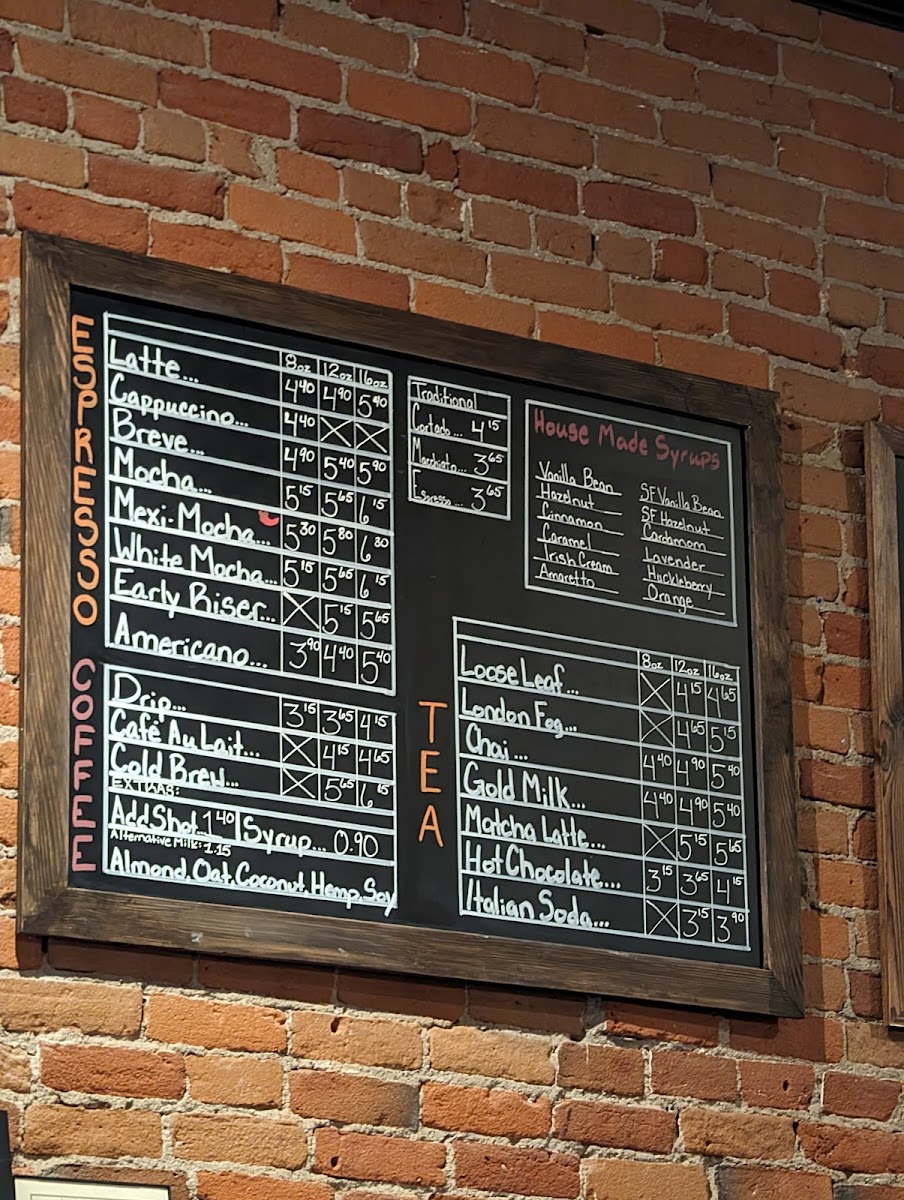 ESPRESSO
8oz 12oz 16oz
Latte... 4.40 4.90 5.40
Cappuccino... 4.40 X X
Breve... 4.90 5.40 5.90
Mocha... 5.15 5.65 6.15
Mexi-Mocha... 5.30 5.80 6.30
White Mocha... 5.15 5.65 6.15
Early Riser... X 5.15 5.65
Americano... 3.90 4.40 5.40
COFFEE
Drip... 3.15 3.65 4.15
Café Au Lait... X 4.15 4.65
Cold Brew... X 5.65 6.15
EXTRAS:
Add Shot..1.40 Syrup... 0.90
Alternative Milk: 1.15
Almond, Oat, Coconut, Hemp, Soy
Traditional
Cortado... 4.15
Macchiato... 3.65
Espresso... 3.65
House Made Syrups
Vanilla Bean
Hazelnut
Cinnamon
Caramel
Irish Cream
Amaretto
SF Vanilla Bean
SF Hazelnut
Cardamom
Lavender
Huckleberry
Orange
TEA
8oz 12oz 16oz
Loose Leaf... X 4.15 4.65
London Fog... X 4.65 5.15
Chai... 4.40 4.90 5.40
Gold Milk... 4.40 4.90 5.40
Matcha Latte... X 5.15 5.65
Hot Chocolate... 3.15 3.65 4.15
Italian Soda... X 3.15 3.90